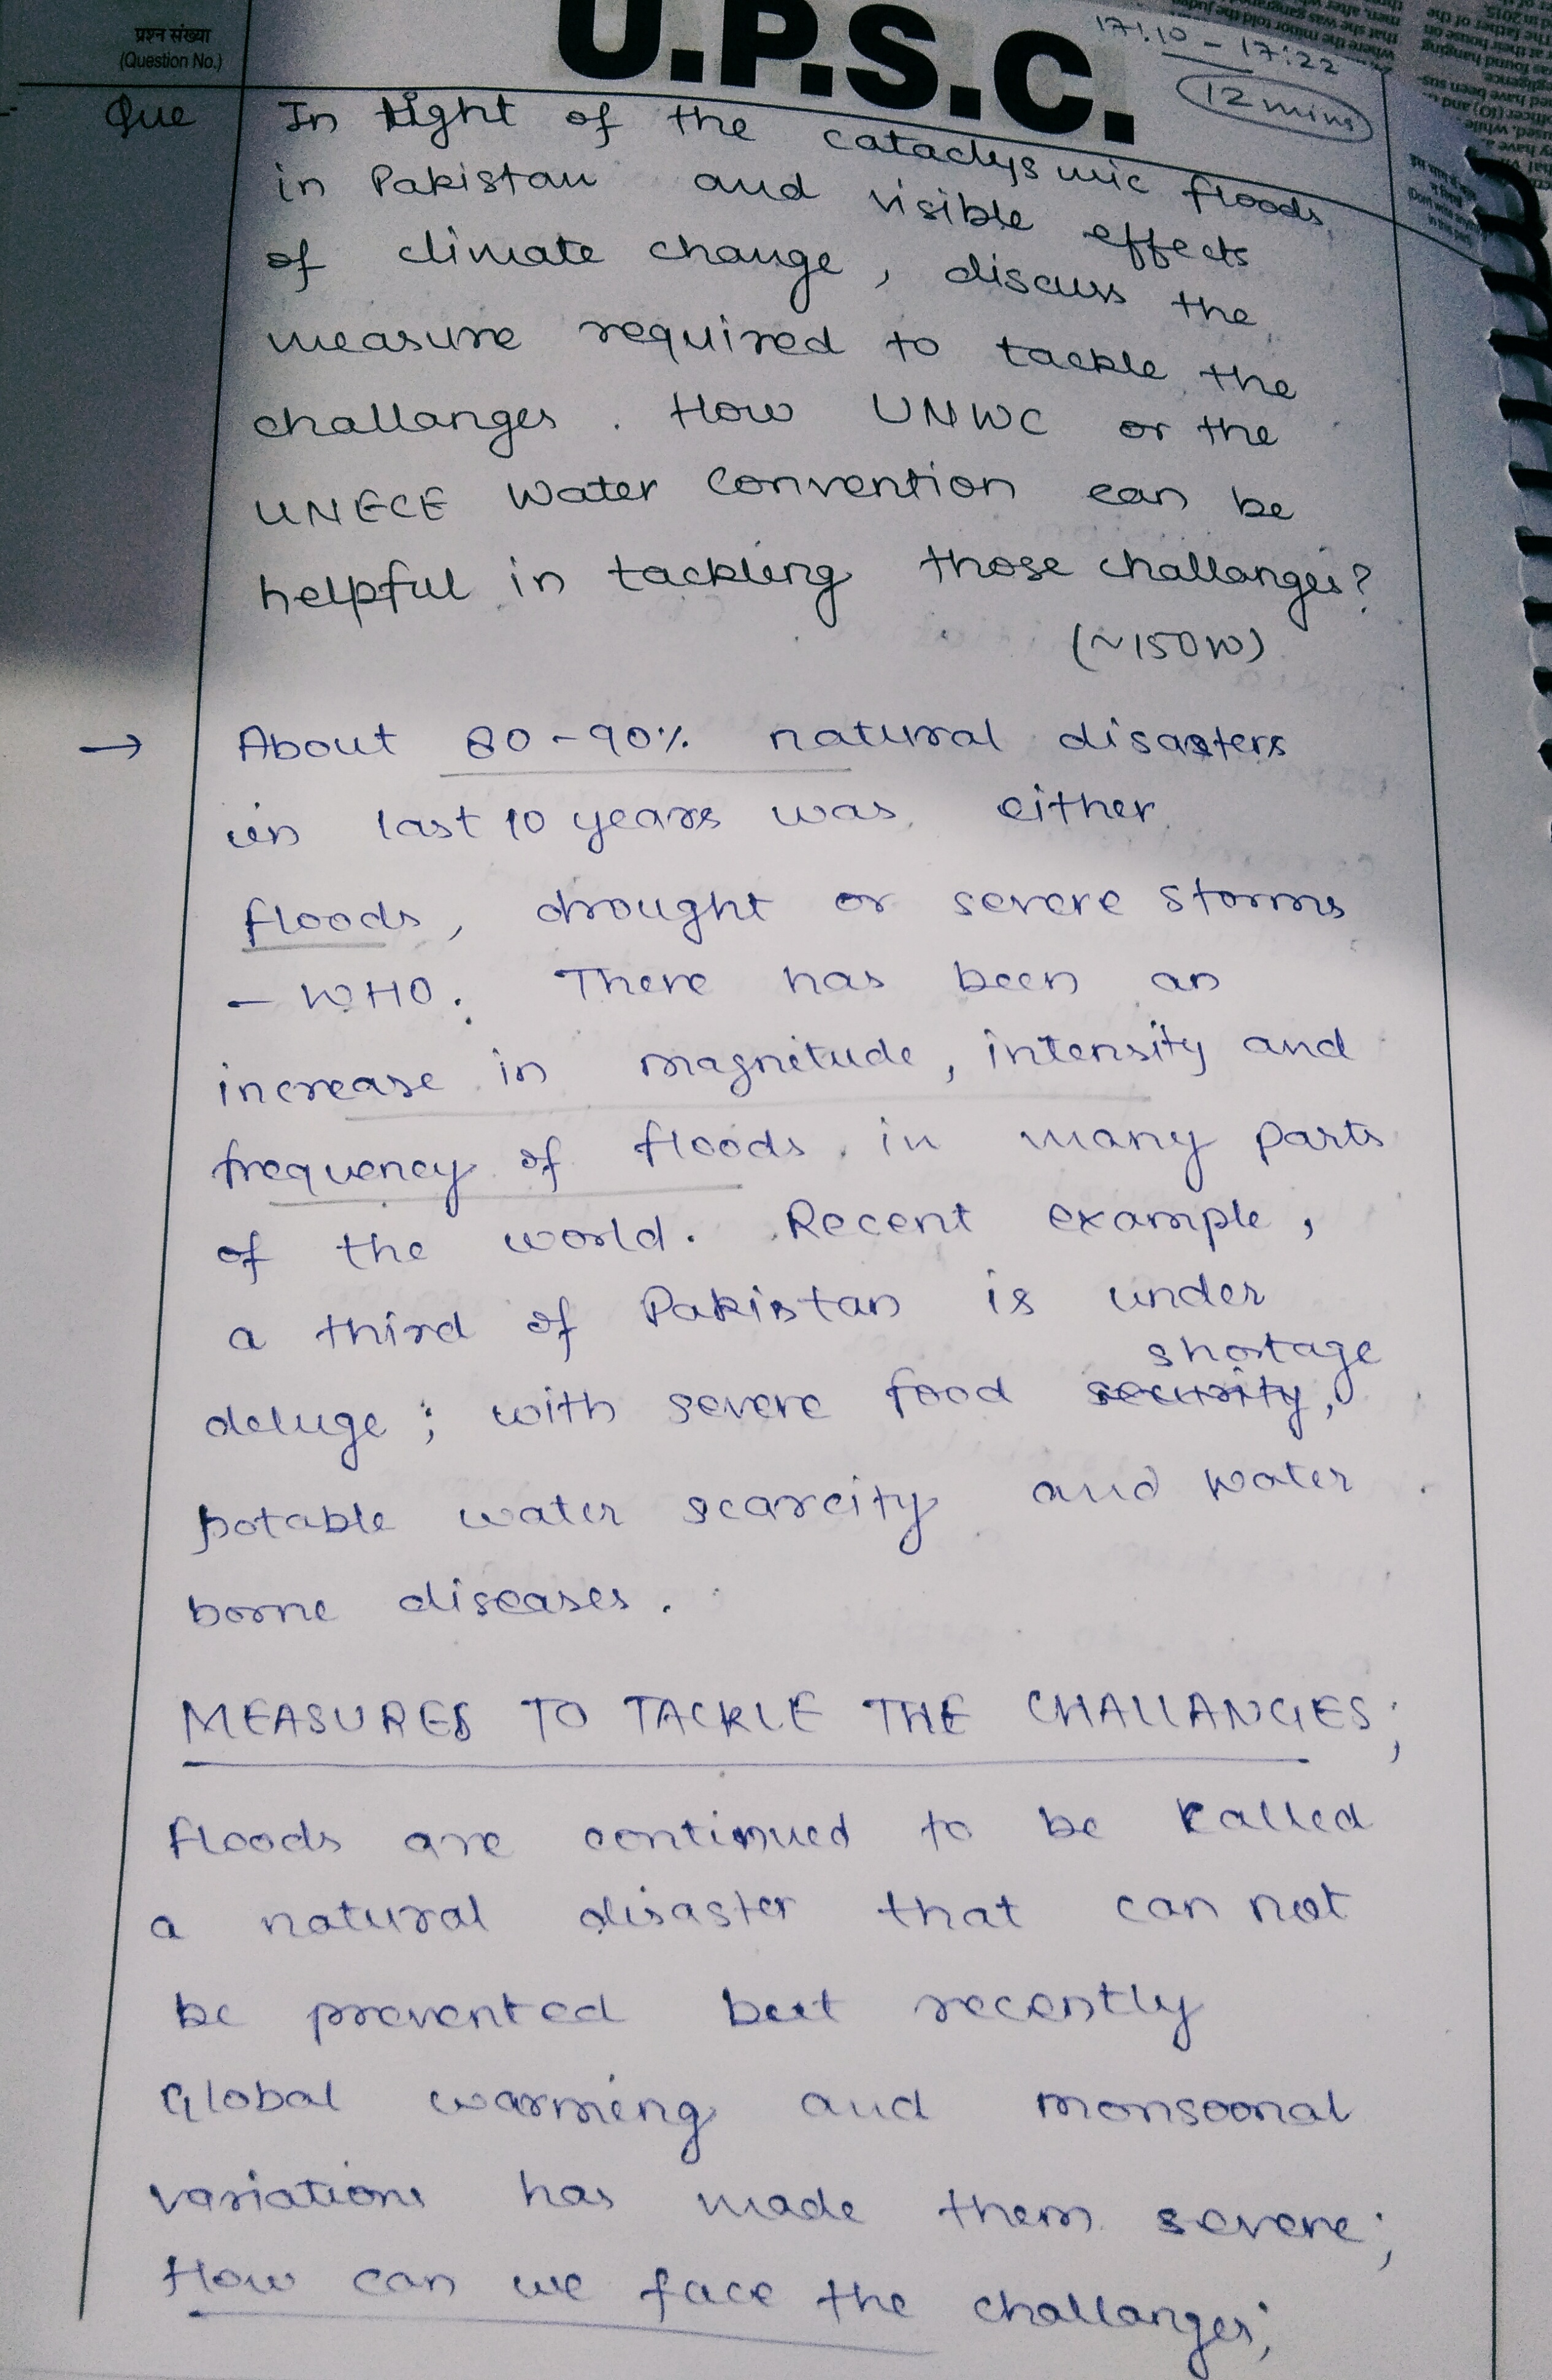 प्रश्न संख्या
(Question No.)
U.P.S.C.
17:10 - 17:22
12 mins
Que In light of the cataclysmic floods
in Pakistan and visible effects
of climate change, discuss the
measure required to tackle the
challanges. How UNWC or the
UNECE Water Convention can be
helpful in tackling those challanges?
(~150W)
→ About 80-90% natural disasters
in last 10 years was either
floods, drought or severe storms
- WHO. There has been an
increase in magnitude, intensity and
frequency of floods in many parts
of the world. Recent example,
a third of Pakistan is under
shortage
deluge; with severe food security,
potable water scarcity and water
borne diseases.
MEASURES TO TACKLE THE CHALLANGES;
floods are continued to be called
a natural disaster that can not
be prevented but recently
Global warming and monsoonal
variations has made them severe;
How can we face the challanges;